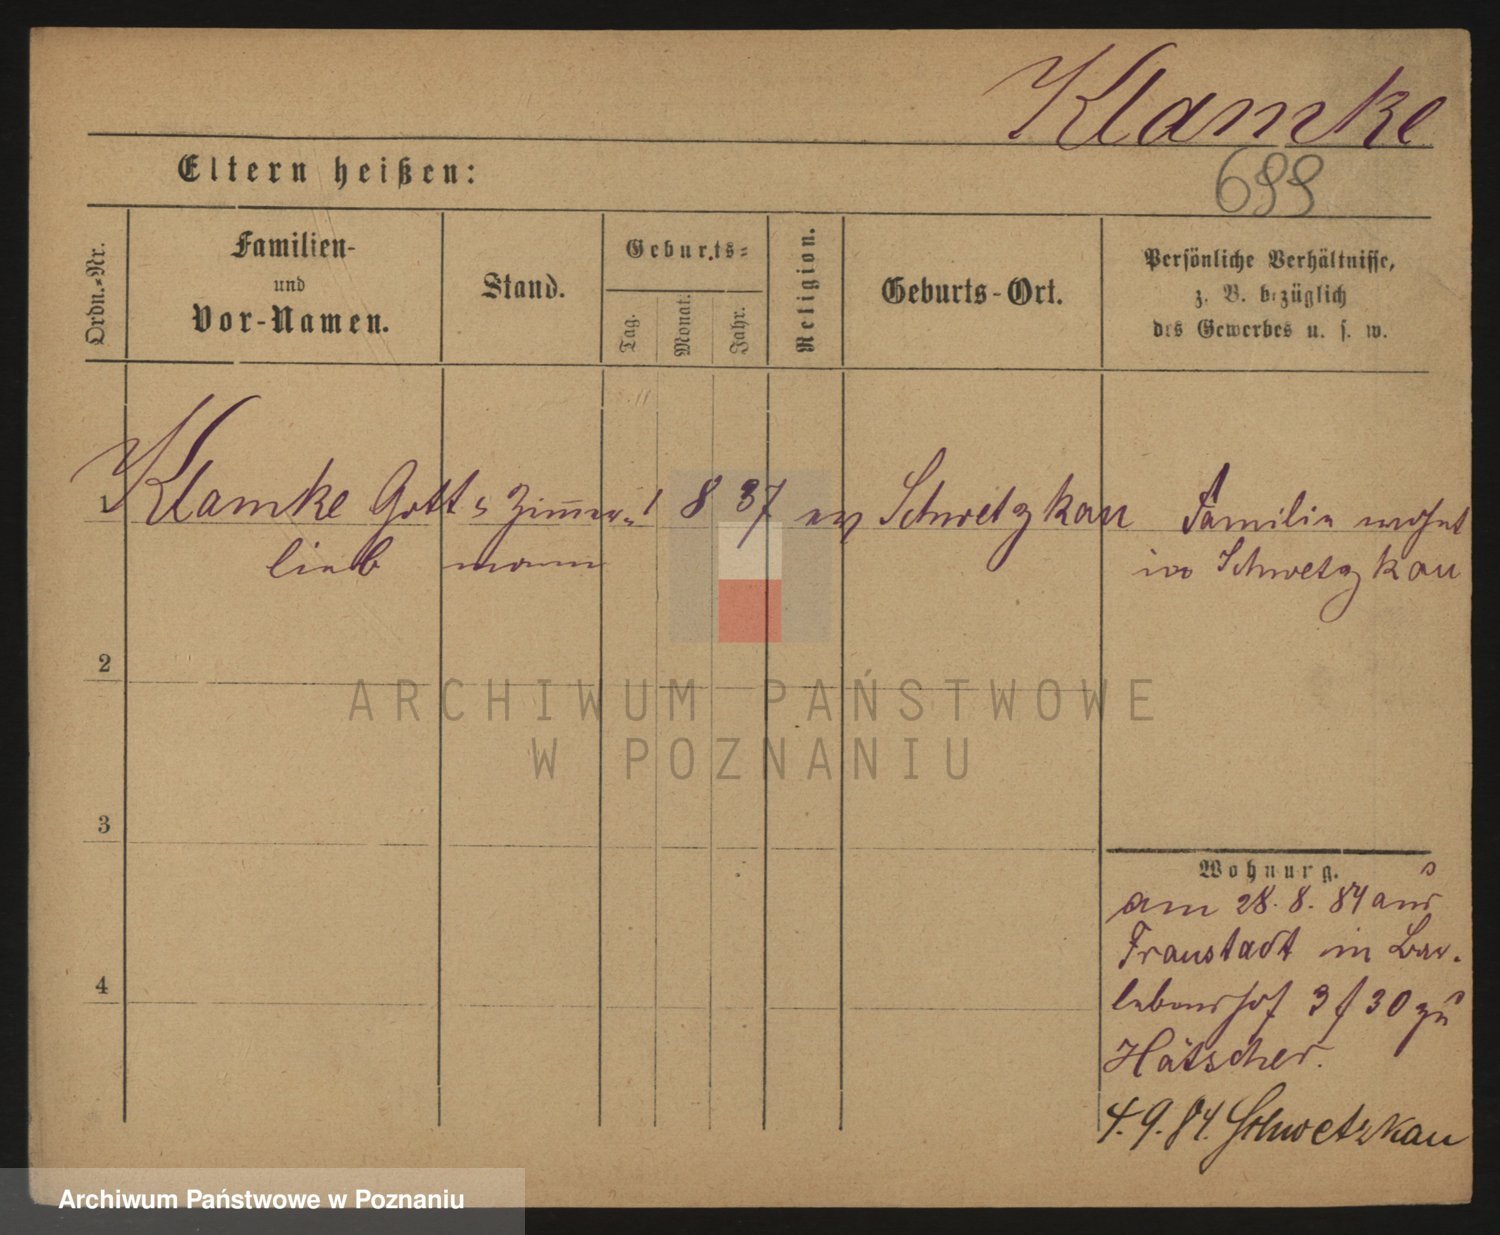 Klamke
699
Eltern heißen:
Ordn.-Nr.
Familien-
und
Vor-Namen.
Stand.
Geburts-
Tag.
Monat.
Jahr.
Religion.
Geburts-Ort.
Persönliche Verhältnisse,
z. B. bezüglich
des Gewerbes u. s. w.
1 Klamke Gott= Zimmer= 1 8 37 ev Schwetzkau Familie wohnt
lieb mann in Schwetzkau
2
ARCHIWUM PAŃSTWOWE
W POZNANIU
3
Wohnung.
am 28. 8. 84 aus
Fraustadt in
3 / 30 zu
Hätscher.
4
4. 9. 84. Schwetzkau
Archiwum Państwowe w Poznaniu